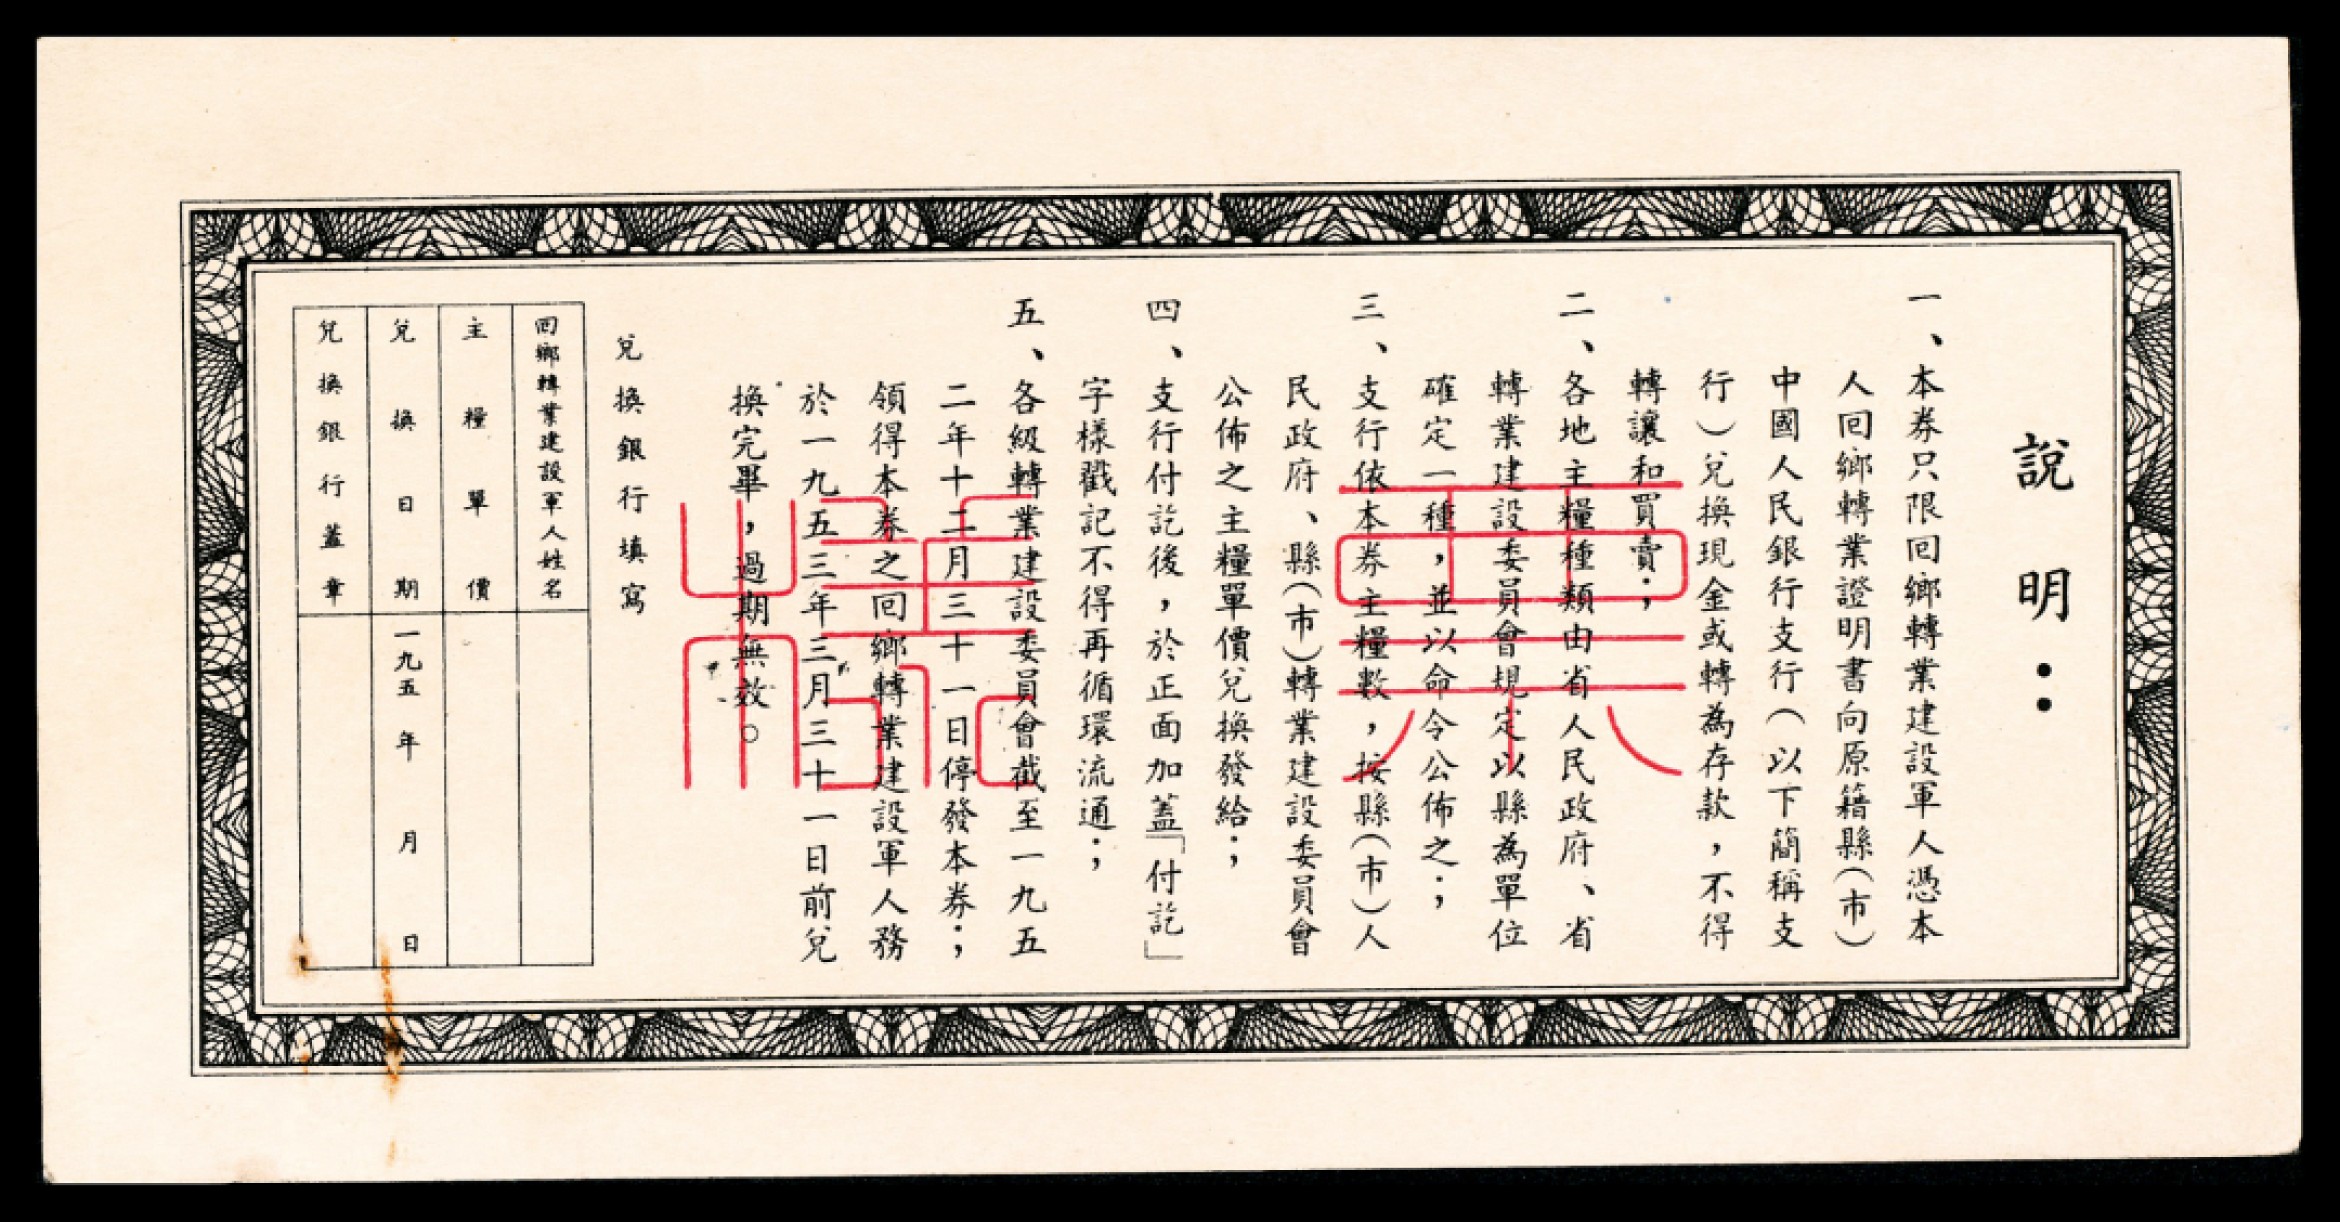 說明：
一、本券只限回鄉轉業建設軍人憑本
人回鄉轉業證明書向原籍縣(市)
中國人民銀行支行(以下簡稱支
行)兌換現金或轉為存款，不得
轉讓和買賣；
二、各地主糧種類由省人民政府、省
轉業建設委員會規定以縣為單位
確定一種，並以命令公佈之；
三、支行依本券主糧數，按縣(市)人
民政府、縣(市)轉業建設委員會
公佈之主糧單價兌換發給；
四、支行付訖後，於正面加蓋「付訖」
字樣戳記不得再循環流通；
五、各級轉業建設委員會截至一九五
二年十二月三十一日停發本券；
領得本券之回鄉轉業建設軍人務
於一九五三年三月三十一日前兌
換完畢，過期無效。
兌換銀行填寫
回鄉轉業建設軍人姓名
主糧單價
兌換日期 一九五 年 月 日
兌換銀行蓋章
票樣